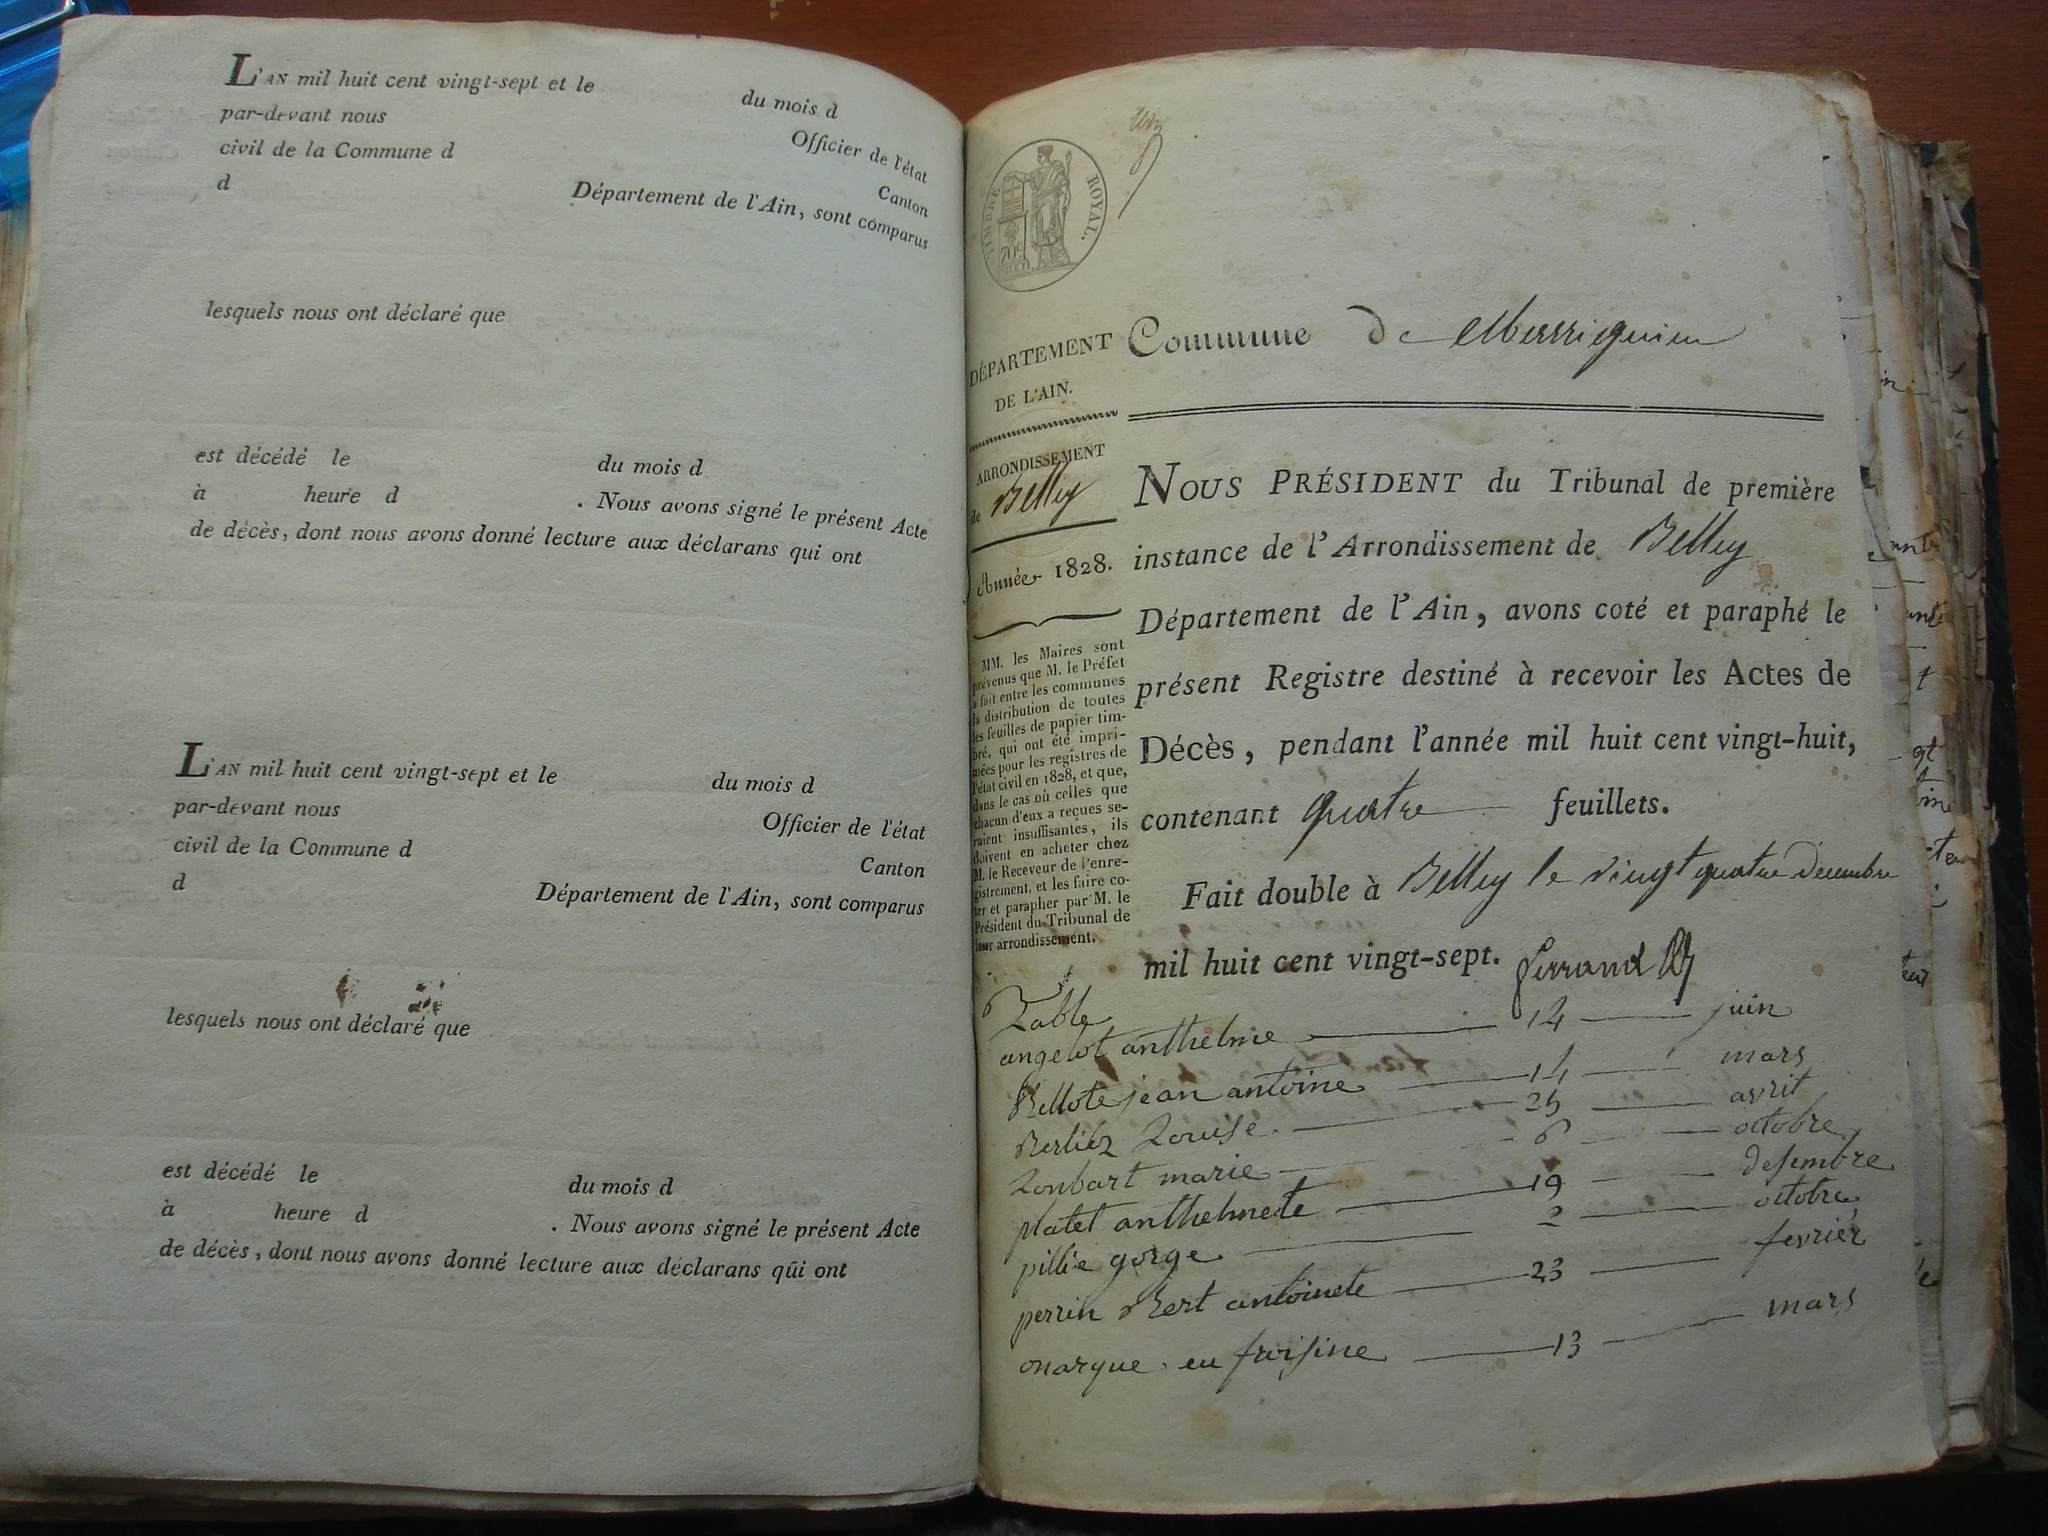 L'AN mil huit cent vingt-sept et le du mois d
par-devant nous Officier de l'état
civil de la Commune d Canton
d Département de l'Ain, sont comparus
lesquels nous ont déclaré que
est décédé le du mois d
à heure d . Nous avons signé le présent Acte
de décès, dont nous avons donné lecture aux déclarans qui ont
L'AN mil huit cent vingt-sept et le du mois d
par-devant nous Officier de l'état
civil de la Commune d Canton
d Département de l'Ain, sont comparus
lesquels nous ont déclaré que
est décédé le du mois d
à heure d . Nous avons signé le présent Acte
de décès, dont nous avons donné lecture aux déclarans qui ont
TIMBRE ROYAL.
70c
DÉPARTEMENT
DE L'AIN.
ARRONDISSEMENT
de Belley
Année 1828.
MM. les Maires sont
prévenus que M. le Préfet
a fait entre les communes
la distribution de toutes
les feuilles de papier tim-
bré, qui ont été impri-
mées pour les registres de
l'état civil en 1828, et que,
dans le cas où celles que
chacun d'eux a reçues se-
raient insuffisantes, ils
doivent en acheter chez
M. le Receveur de l'enre-
gistrement, et les faire co-
ter et parapher par M. le
Président du Tribunal de
leur arrondissement.
Commune de
NOUS PRÉSIDENT du Tribunal de première
instance de l'Arrondissement de Belley
Département de l'Ain, avons coté et paraphé le
présent Registre destiné à recevoir les Actes de
Décès, pendant l'année mil huit cent vingt-huit,
contenant quatre feuillets.
Fait double à Belley le vingt quatre Décembre
mil huit cent vingt-sept. Ferrand
Table
angelot anthelme 14 juin
Bellote jean antoine 14 mars
Berliez Louise 25 avrit
Lonbart marie 6 octobre
platet anthelmete 19 desembre
pillie gorge 2 octobre
perrin Bert antoinete 23 fevrier
marque eu froisine 13 mars